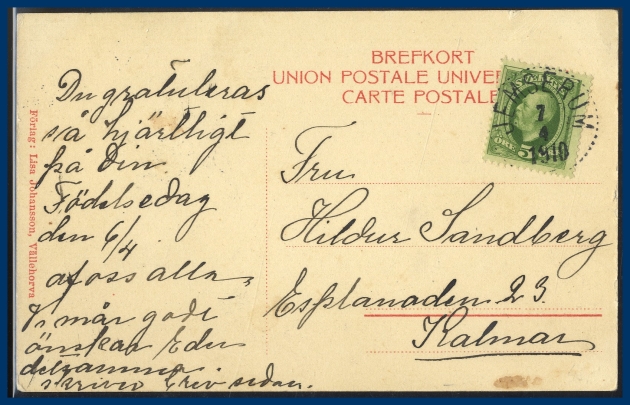 BREFKORT
UNION POSTALE UNIVER
CARTE POSTALE
JEMSERUM
7
4
1910
5
ÖRE
Du gratuleras
så hjärtligt
på Din
Födelsedag
den 6/4
af oss alla,
Vi mår godt
önskar Eder
detsamma.
skriver brev sedan.
Fru
Hildur Sandberg
Esplanaden 23.
Kalmar
Förlag: Lisa Johansson, Vällehorva